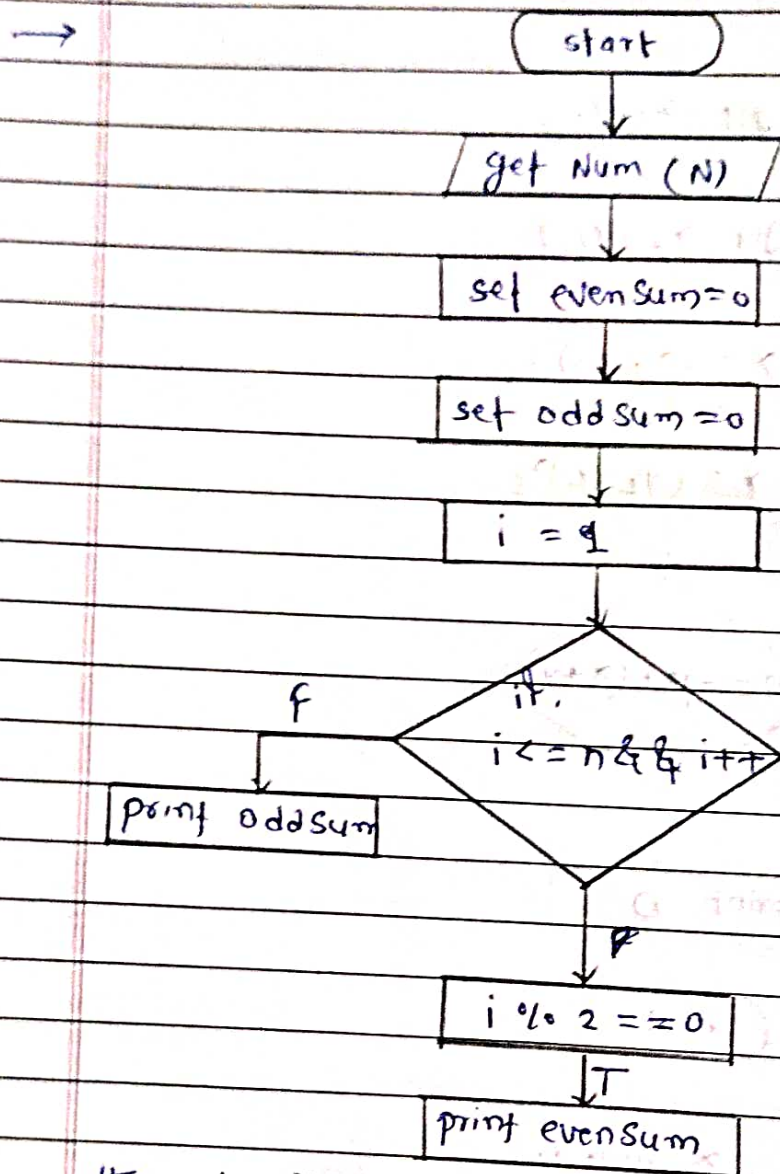 start
get Num (N)
set evenSum=0
set oddSum=0
i = 1
if.
i<=n && i++
F
print oddSum
i % 2 ==0
T
print evenSum